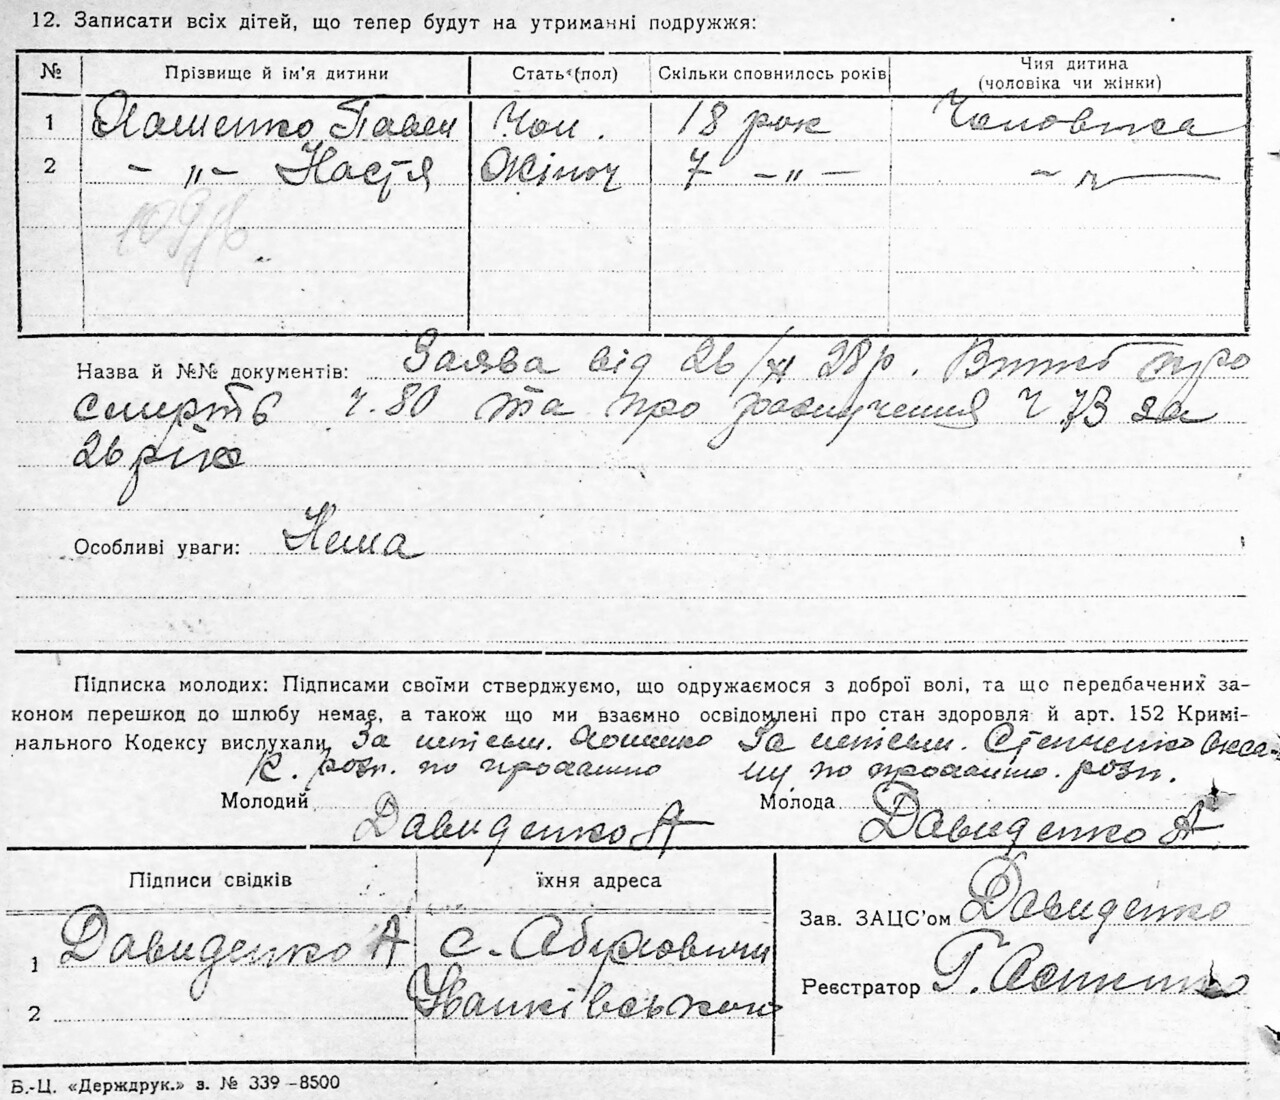 12. Записати всіх дітей, що тепер будут на утриманні подружжя:
№ Прізвище й ім'я дитини Стать (пол) Скільки сповнилось років Чия дитина
(чоловіка чи жінки)
1 Павел Чол. 18 рок Чоловіка
2 — „ — Настя Жіноч 7 — „ —
Назва й №№ документів: Заява від 26/XI 28р. про
смерть ч. 80 та про розлучения ч 73 за
26 рік
Особливі уваги: Нема
Підписка молодих: Підписами своїми стверджуємо, що одружаємося з доброї волі, та що передбачених за-
коном перешкод до шлюбу немає, а також що ми взаємно освідомлені про стан здоровля й арт. 152 Кримі-
нального Кодексу вислухали За За Оксa-
розп. по ну по розп.
Молодий Давиденко А Молода Давиденко А
Підписи свідків їхня адреса
Зав. ЗАЦС'ом Давиденко
1 Давиденко А с.
Реєстратор Г.
2
Б.-Ц. «Держдрук.» з. № 339-8500